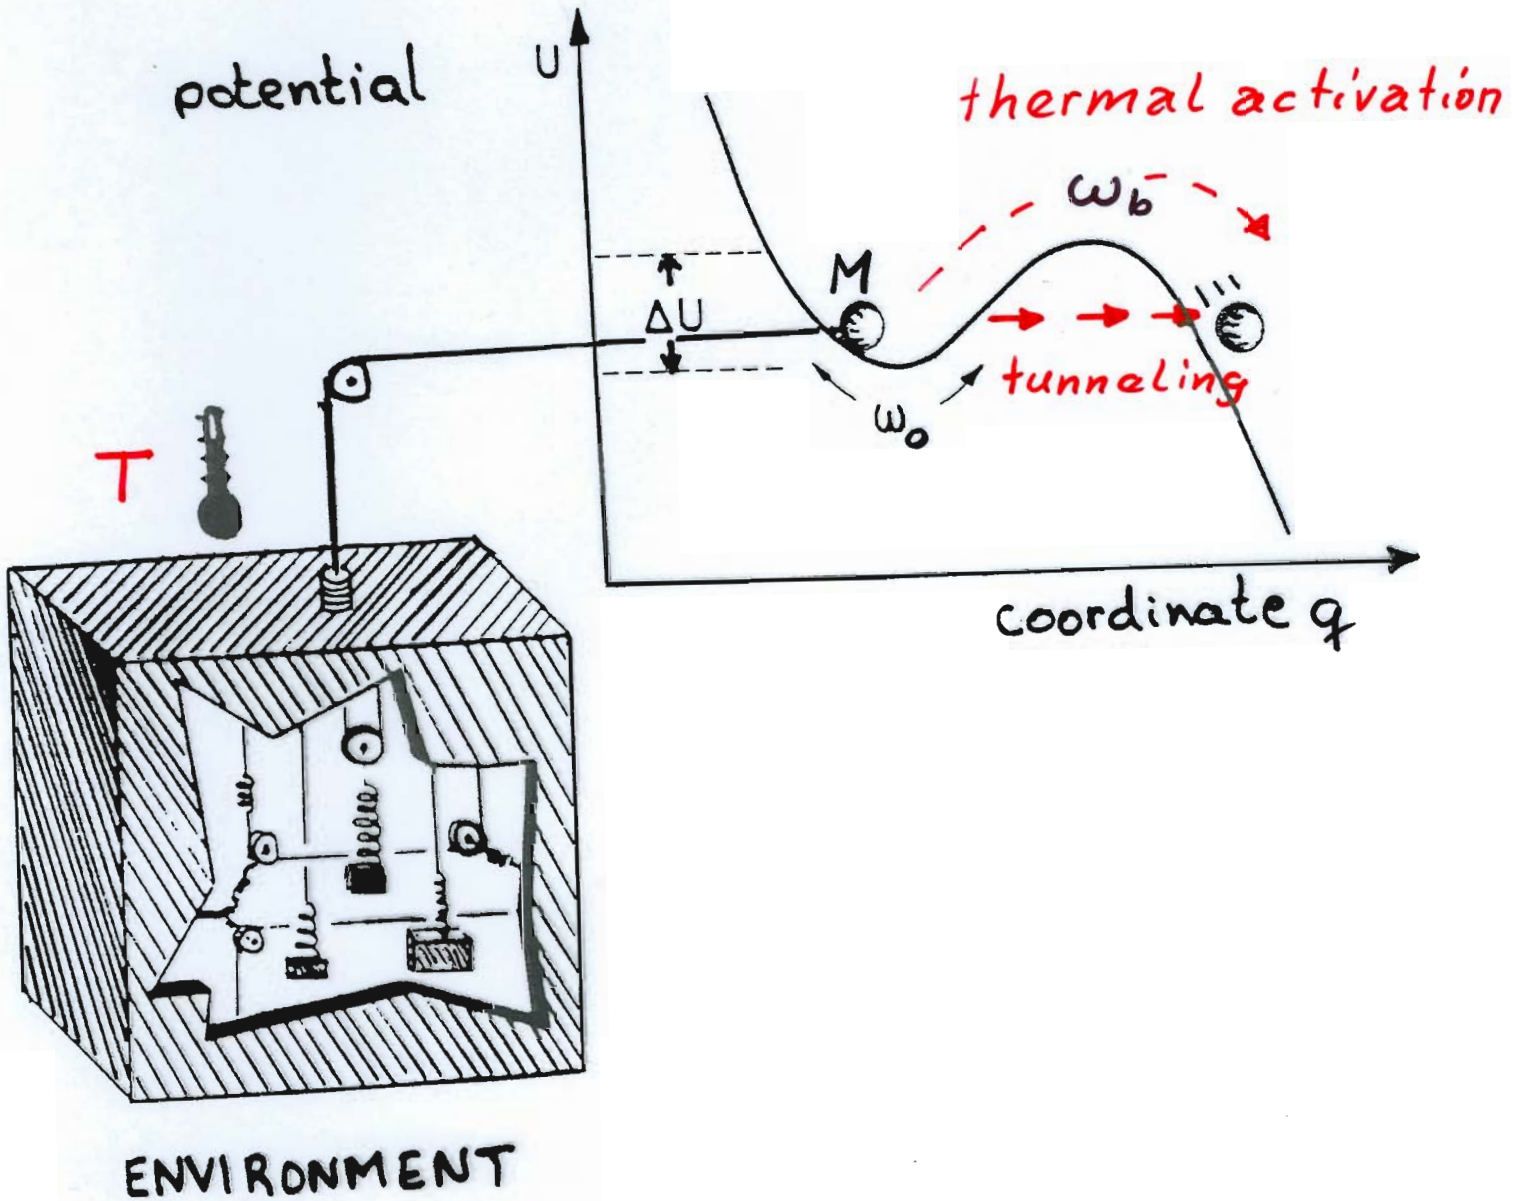 potential
U
thermal activation
ωb
M
ΔU
tunneling
ω0
T
coordinate q
ENVIRONMENT